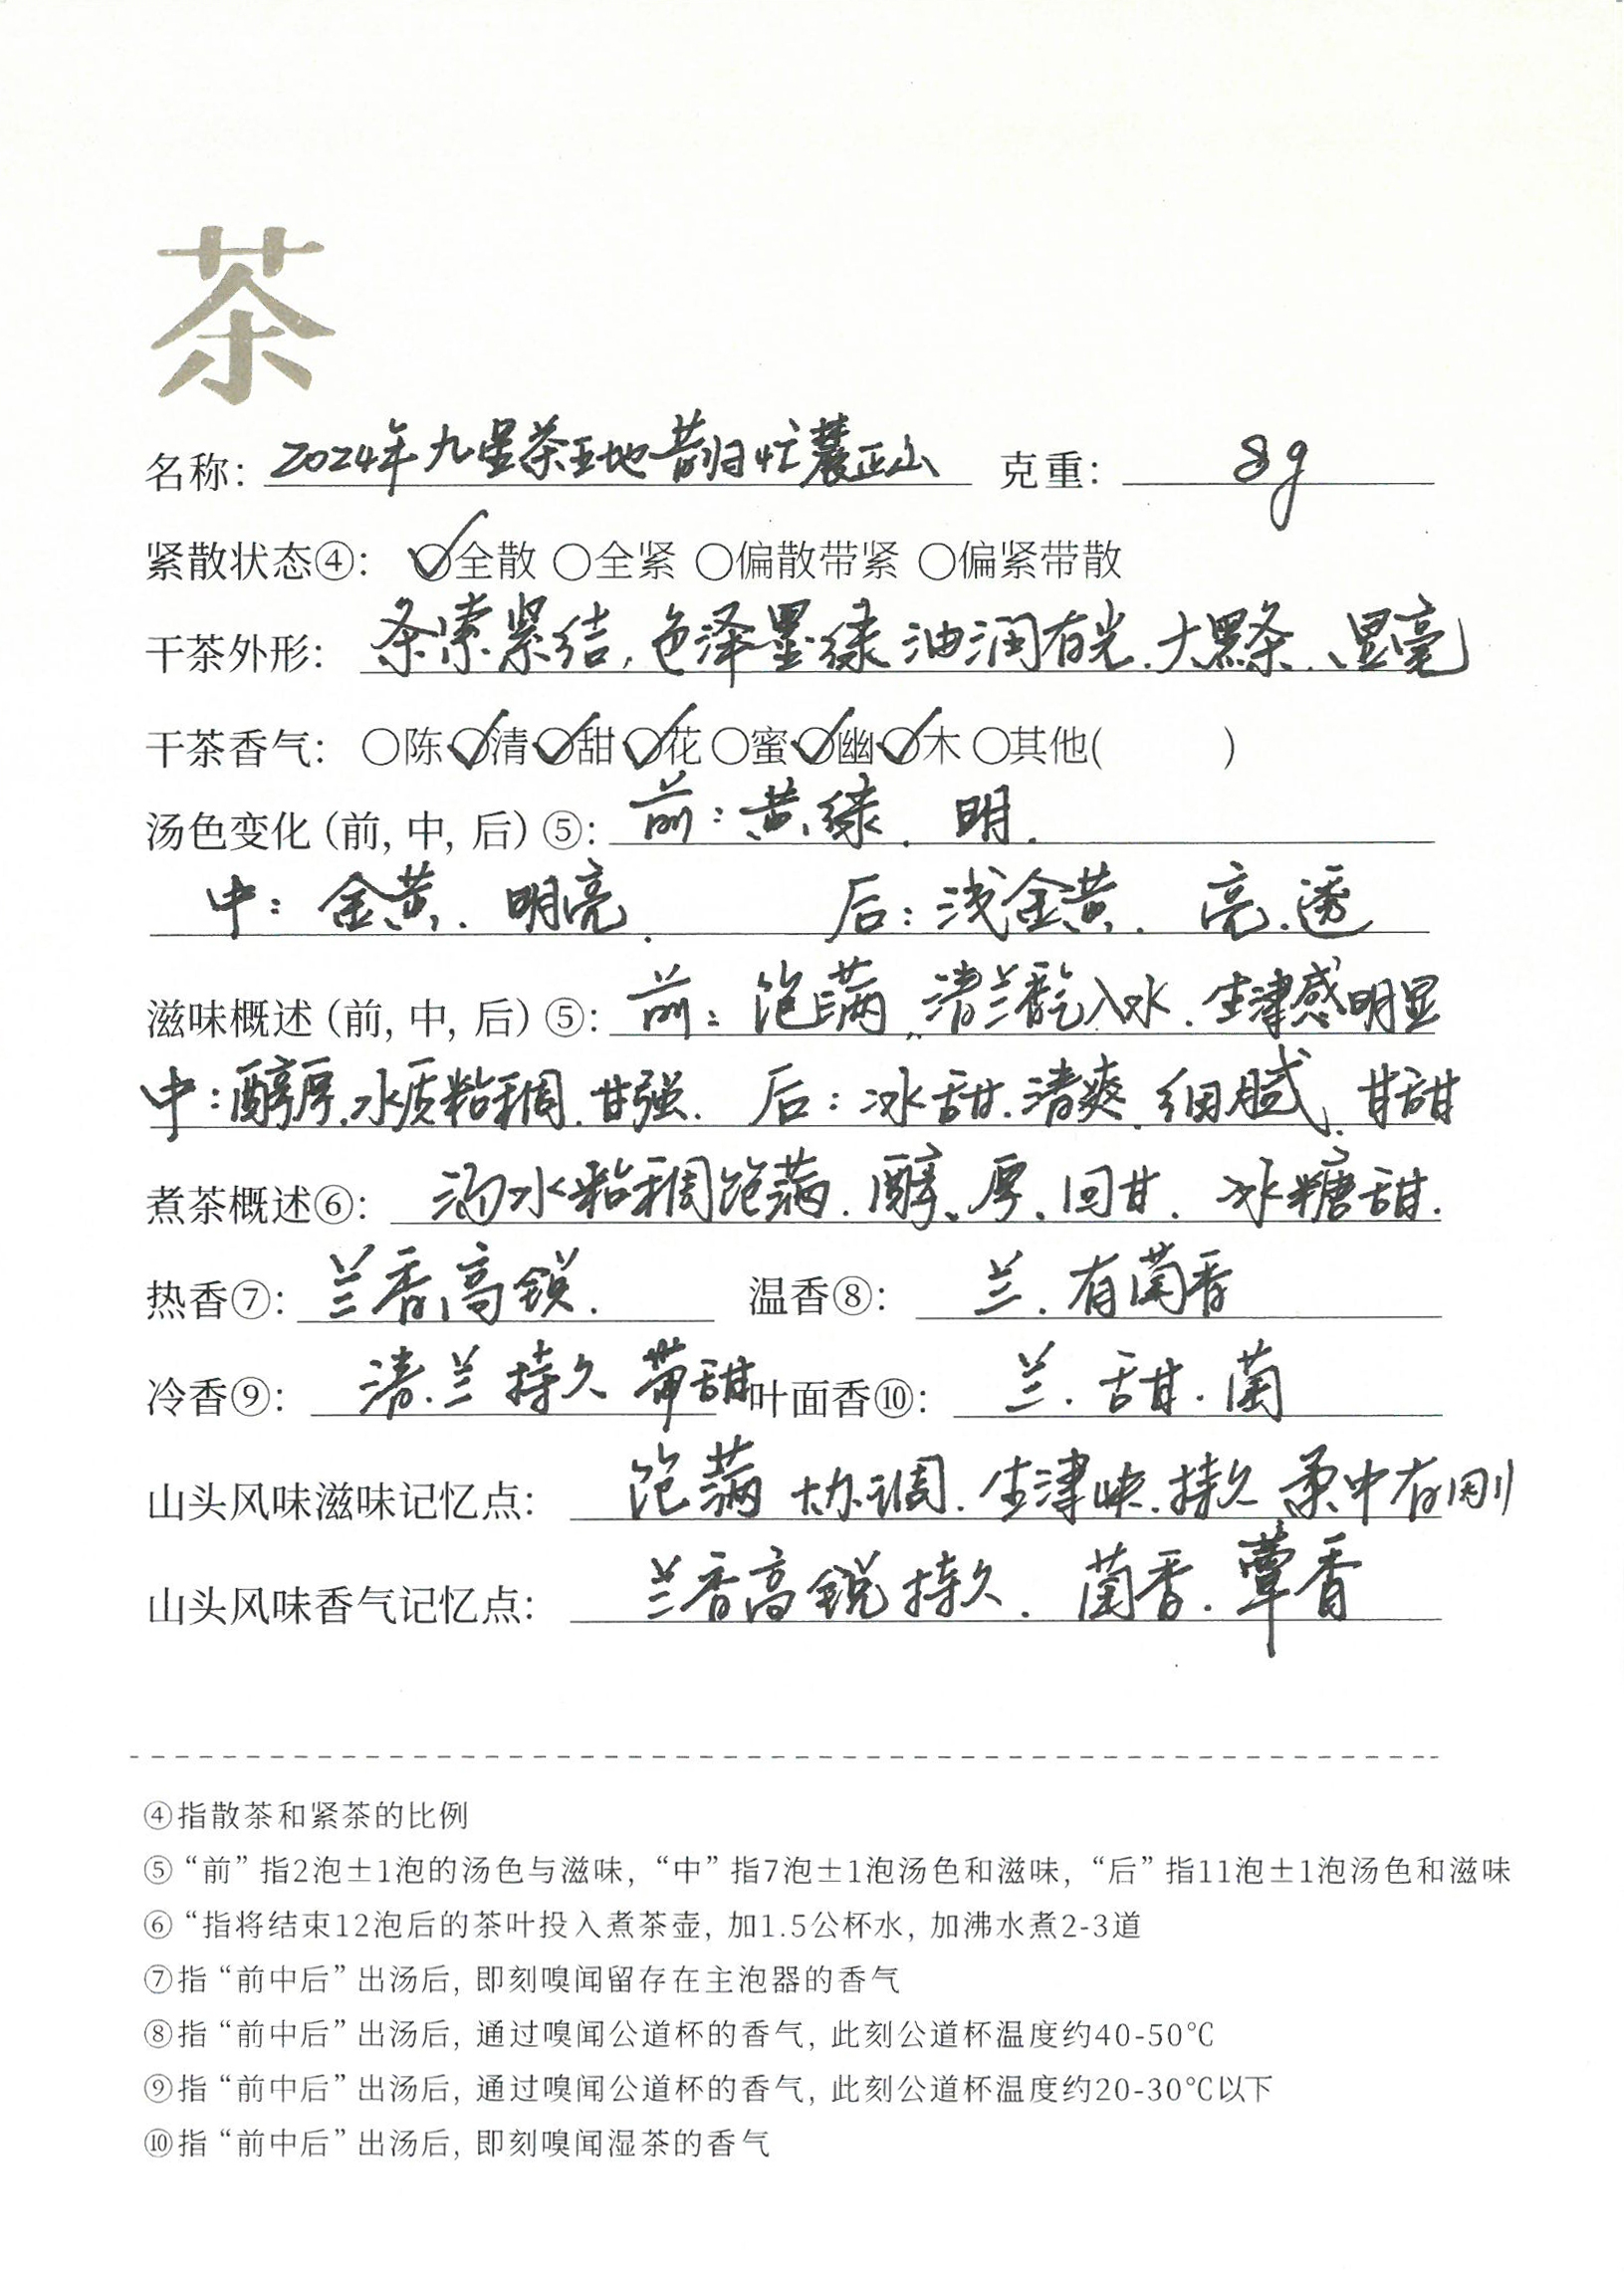 茶
名称: 2024年九星茶王地昔归忙麓正山 克重: 8g
紧散状态④: 全散 全紧 偏散带紧 偏紧带散
干茶外形: 条索紧结,色泽墨绿油润有光.大黑条.显毫
干茶香气: 陈 清 甜 花 蜜 幽 木 其他( )
汤色变化(前, 中, 后)⑤: 前:黄绿.明.
中:金黄.明亮. 后:浅金黄.亮.透
滋味概述(前, 中, 后)⑤: 前:饱满,清兰香气入水.生津感明显
中:醇厚.水质粘稠.甘强. 后:冰甜.清爽.细腻.甘甜
煮茶概述⑥: 汤水粘稠饱满.醇、厚、回甘.冰糖甜.
热香⑦: 兰香高锐. 温香⑧: 兰.有菌香
冷香⑨: 清.兰持久 带甜 叶面香⑩: 兰.甜.菌
山头风味滋味记忆点: 饱满 协调.生津快.持久 柔中有刚
山头风味香气记忆点: 兰香高锐持久.菌香.蕈香
④指散茶和紧茶的比例
⑤“前”指2泡±1泡的汤色与滋味, “中”指7泡±1泡汤色和滋味, “后”指11泡±1泡汤色和滋味
⑥“指将结束12泡后的茶叶投入煮茶壶, 加1.5公杯水, 加沸水煮2-3道
⑦指“前中后”出汤后, 即刻嗅闻留存在主泡器的香气
⑧指“前中后”出汤后, 通过嗅闻公道杯的香气, 此刻公道杯温度约40-50℃
⑨指“前中后”出汤后, 通过嗅闻公道杯的香气, 此刻公道杯温度约20-30℃以下
⑩指“前中后”出汤后, 即刻嗅闻湿茶的香气